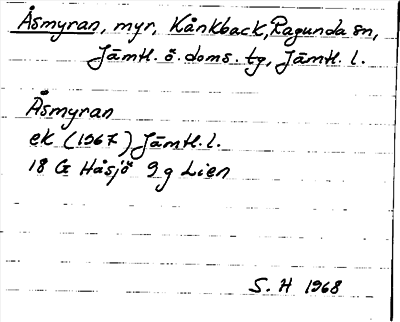 Åsmyran, myr, Kånkback, Ragunda sn,
Jämtl. ö. doms. tg, Jämtl. l.
Åsmyran
ek (1967) Jämtl. l.
18 G Håsjö 9 g Lien
S. H 1968